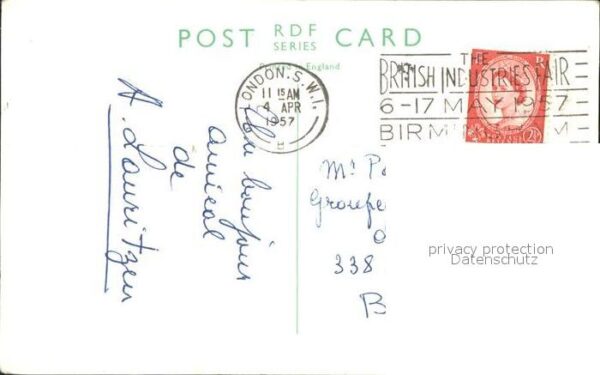 POST RDF SERIES CARD
Printed in England
LONDON. S.W.1.
11 15 AM
4 APR
1957
THE
BRITISH INDUSTRIES FAIR
6-17 MAY 1957
BIRMINGHAM
2½
bonjour
amical
de
A. Lauritzen
Mr P
Groupe
338
B
privacy protection
Datenschutz